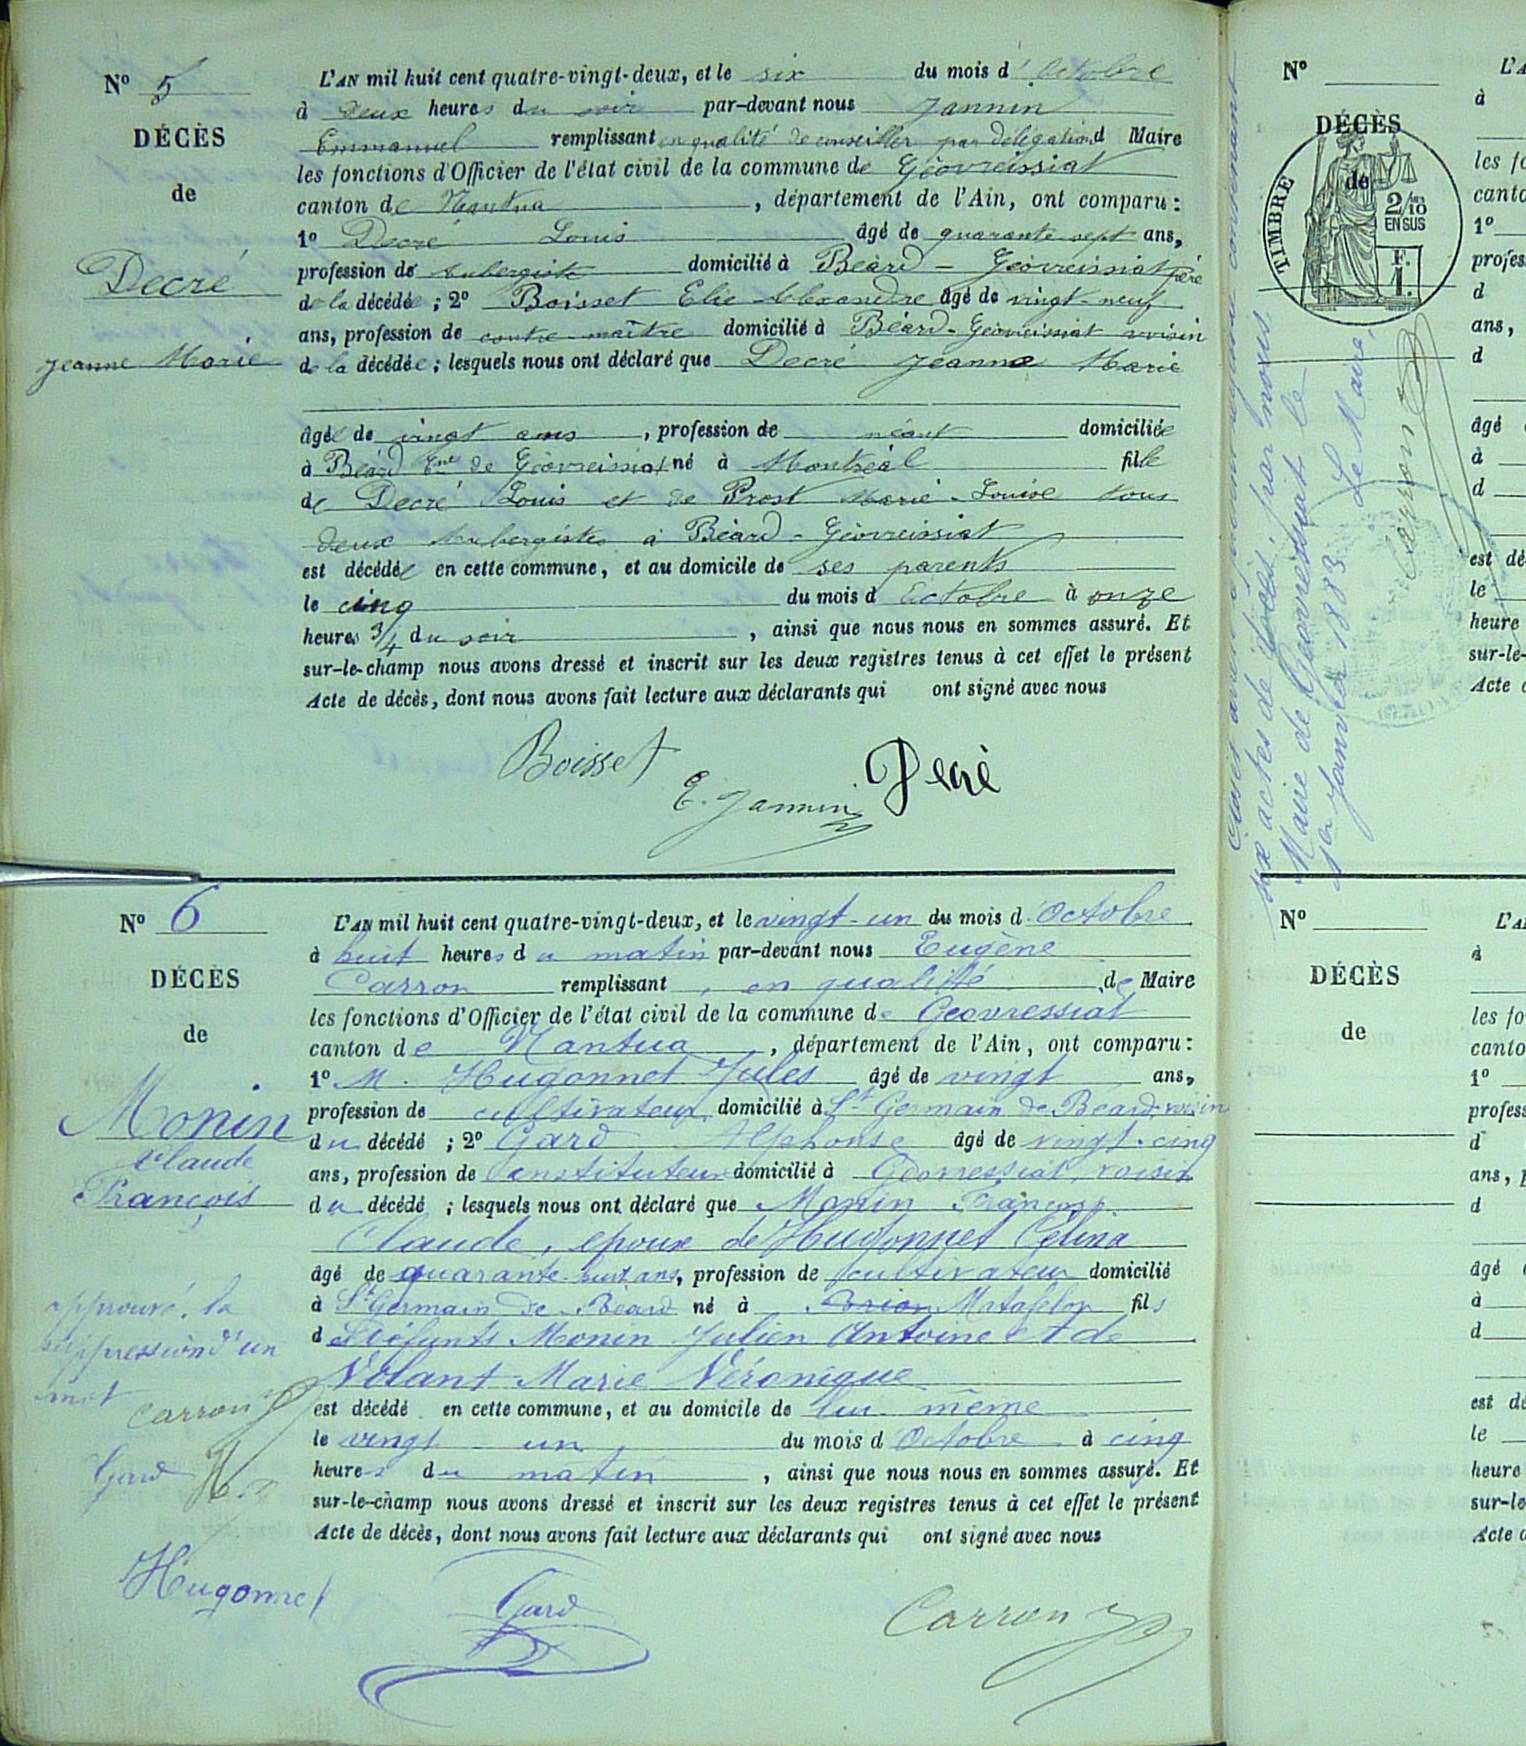 N° 5
DÉCÈS
de
Decré
Jeanne Marie
L'AN mil huit cent quatre-vingt-deux, et le six du mois d'Octobre
à deux heures du soir par-devant nous Jannin
Emmanuel remplissant en qualité de conseiller par délégation d Maire
les fonctions d'Officier de l'état civil de la commune de Géovreissiat
canton de Nantua, département de l'Ain, ont comparu:
1° Decré Louis âgé de quarante-sept ans,
profession de aubergiste domicilié à Béard - Géovreissiat père
de la décédée; 2° Boisset Elie Alexandre âgé de vingt-neuf
ans, profession de contre-maître domicilié à Béard-Géovreissiat voisin
de la décédée; lesquels nous ont déclaré que Decré Jeanne Marie
âgée de vingt ans, profession de néant domiciliée
à Béard Cne de Géovreissiat né à Montréal fille
de Decré Louis et de Prost Marie-Louise tous
deux aubergistes à Béard-Géovreissiat
est décédée en cette commune, et au domicile de ses parents
le cinq du mois d Octobre à onze
heures 3/4 du soir, ainsi que nous nous en sommes assuré. Et
sur-le-champ nous avons dressé et inscrit sur les deux registres tenus à cet effet le présent
Acte de décès, dont nous avons fait lecture aux déclarants qui ont signé avec nous
Boisset
E. Jannin
Decré
N° 6
DÉCÈS
de
Monin
Claude
François
approuvé la
suppression d'un
mot
Carron
Gard
H
L'AN mil huit cent quatre-vingt-deux, et le vingt-un du mois d'Octobre
à huit heures du matin par-devant nous Eugène
Carron remplissant en qualité de Maire
les fonctions d'Officier de l'état civil de la commune de Geovressiat
canton de Nantua, département de l'Ain, ont comparu:
1° M. Hugonnet Jules âgé de vingt ans,
profession de cultivateur domicilié à St Germain de Béard voisin
du décédé; 2° Gard Alphonse âgé de vingt-cinq
ans, profession de instituteur domicilié à Géovressiat, voisin
du décédé; lesquels nous ont déclaré que Monin François
Claude, époux de Hugonnet Célina
âgé de quarante-huit ans, profession de cultivateur domicilié
à St Germain de Béard né à Matafelon fils
d défunts Monin Julien Antoine et de
Volant Marie Véronique
est décédé en cette commune, et au domicile de lui-même
le vingt-un du mois d Octobre à cinq
heures du matin, ainsi que nous nous en sommes assuré. Et
sur-le-champ nous avons dressé et inscrit sur les deux registres tenus à cet effet le présent
Acte de décès, dont nous avons fait lecture aux déclarants qui ont signé avec nous
Hugonnet
Gard
Carron
aux actes de décès, par nous
Maire de Géovressiat le
1er Janvier 1883 Le Maire,
Carron
N°
DÉCÈS
de
TIMBRE
2/10
EN SUS
F.
1.
L'A
à
les fo
canto
1°
profes
d
ans,
d
âgé
à
d
est dé
le
heure
sur-le-
Acte d
N°
DÉCÈS
de
L'A
à
les fo
canto
1°
profess
d
ans, p
d
âgé
à
d
est dé
le
heure
sur-le
Acte d